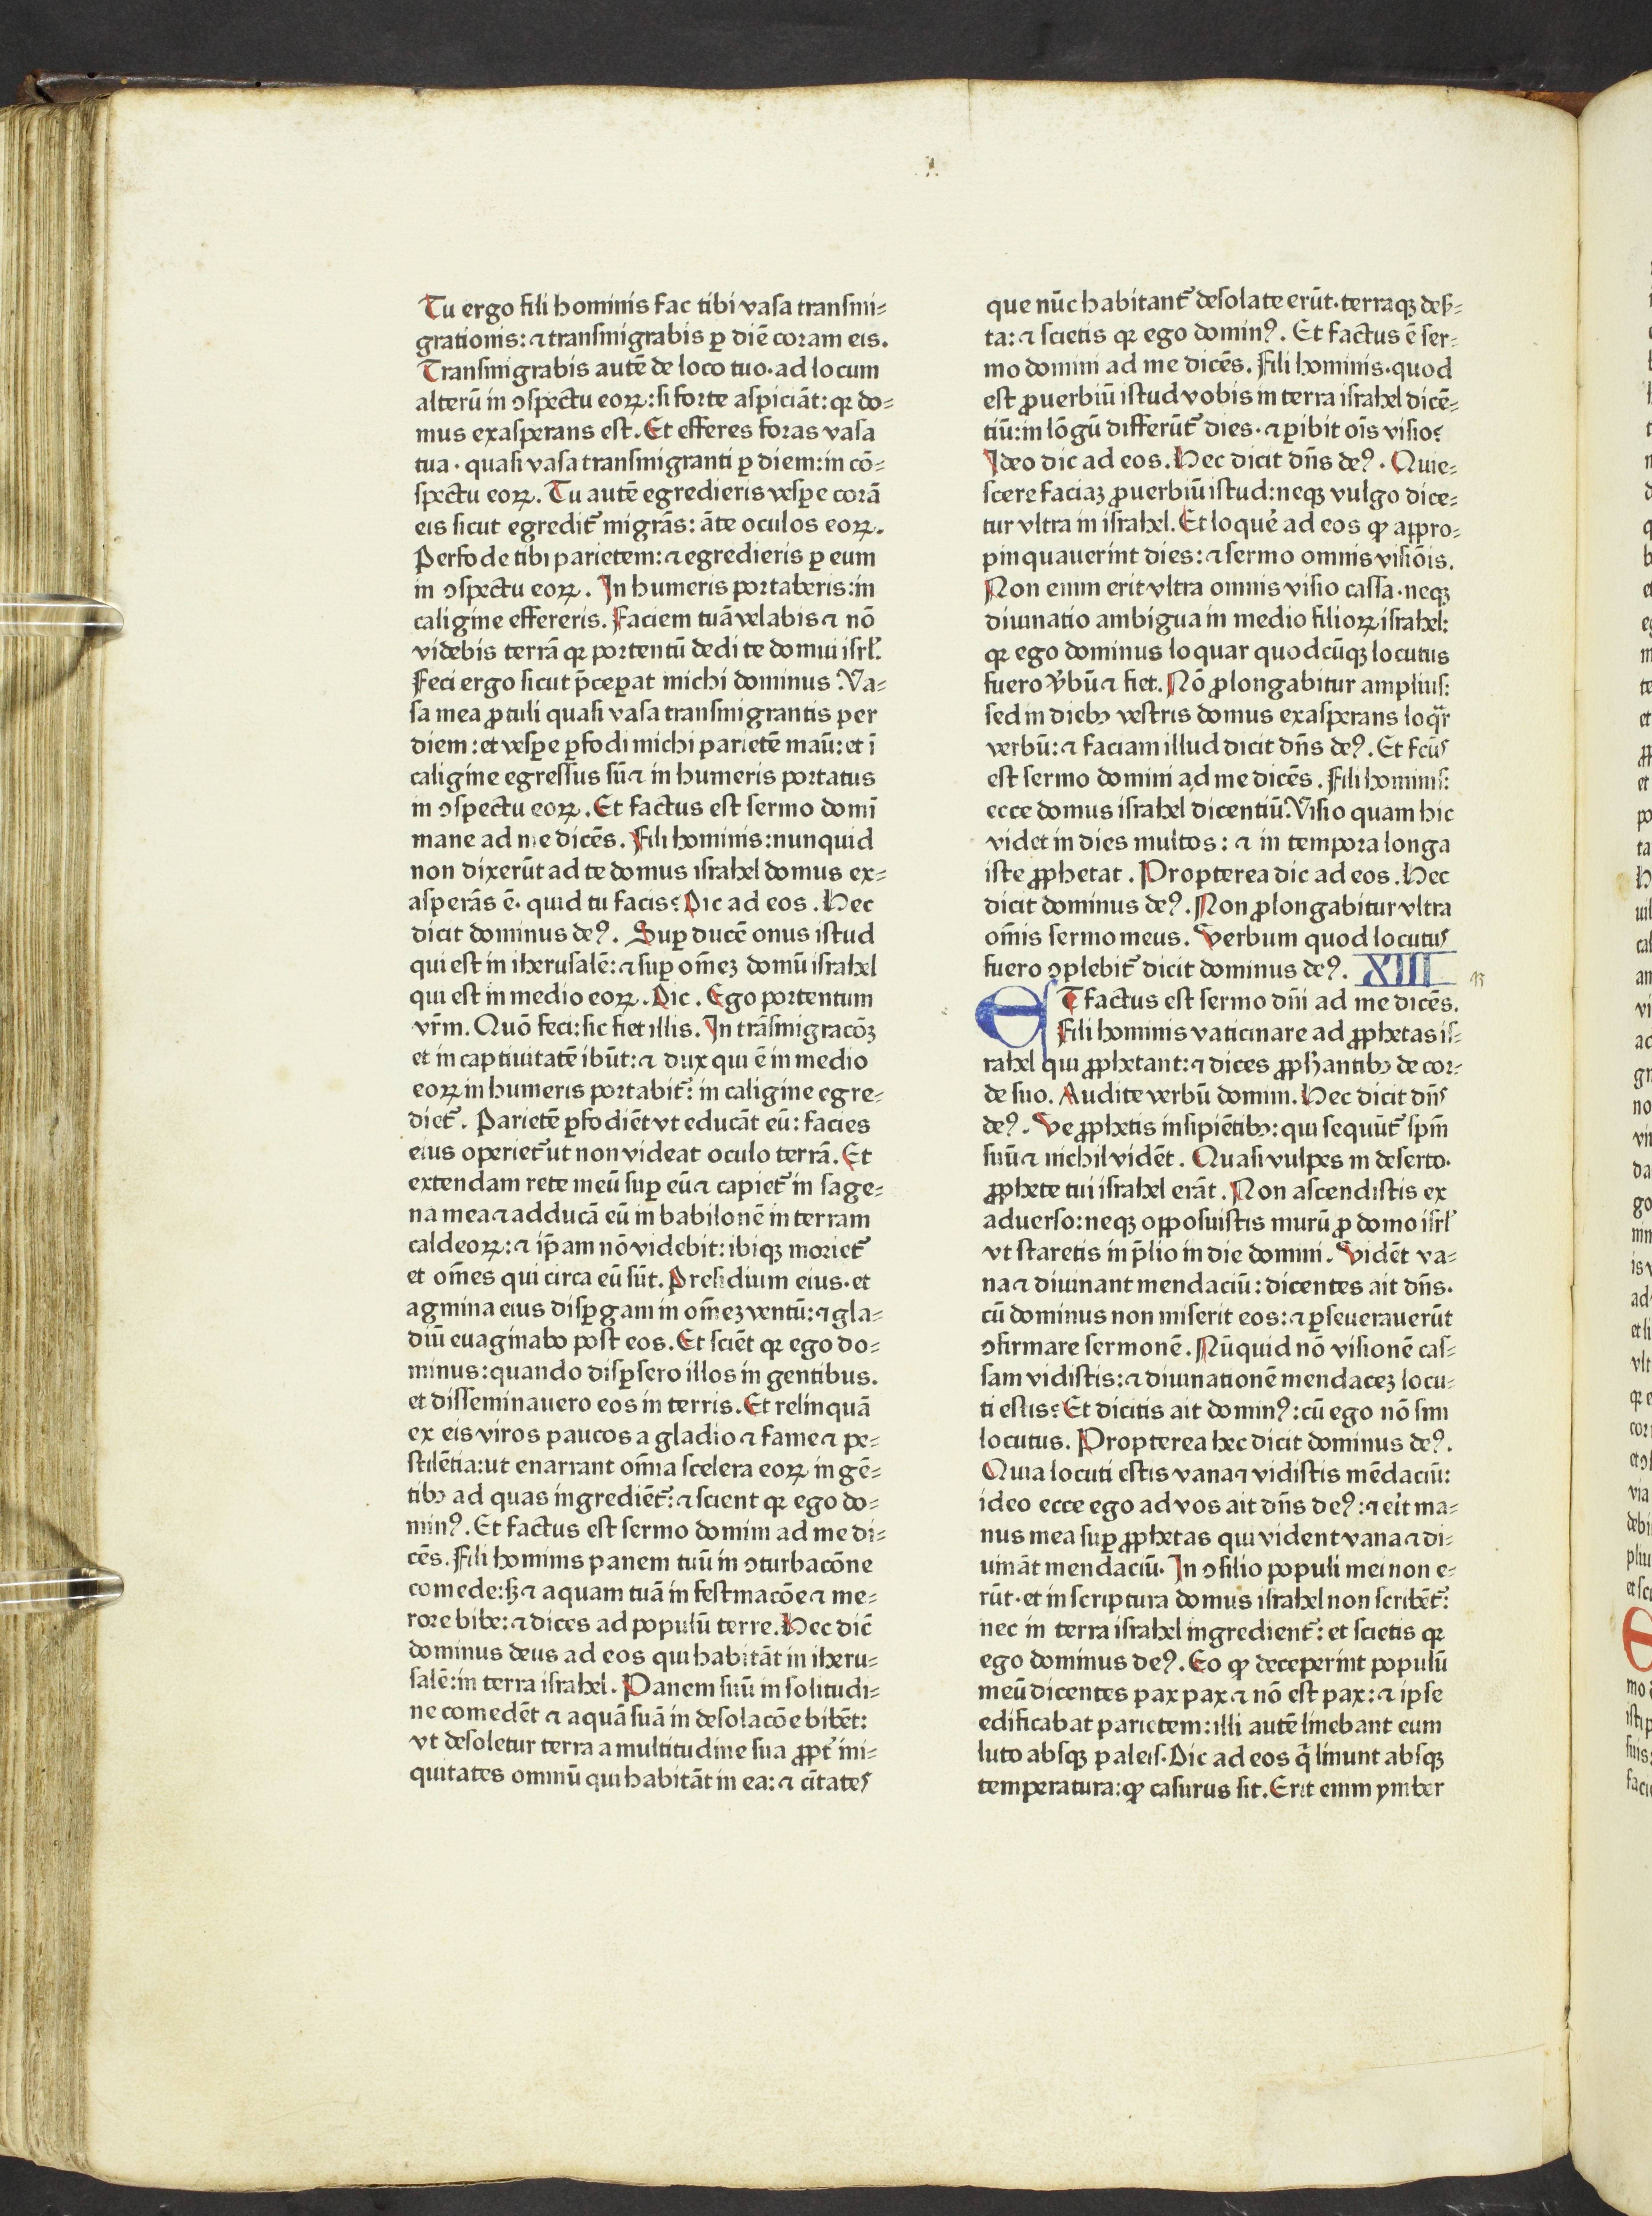 Tu ergo fili hominis fac tibi vasa transmi=
grationis: ⁊ transmigrabis ꝑ diē coram eis.
Transmigrabis autē de loco tuo. ad locum
alterū in ↄspectu eoꝝ: si forte aspiciāt: qꝛ do=
mus exasperans est. Et efferes foras vasa
tua. quasi vasa transmigranti ꝑ diem: in cō=
spectu eoꝝ. Tu autē egredieris vesꝑe corā
eis sicut egredit᷑ migrās: āte oculos eoꝝ.
Perfode tibi parietem: ⁊ egredieris ꝑ eum
in ↄspectu eoꝝ. In humeris portaberis: in
caligine effereris. Faciem tuā velabis ⁊ nō
videbis terrā qꝛ portentū dedi te domui isrl̓.
Feci ergo sicut p̄ceꝑat michi dominus. Va=
sa mea ꝓtuli quasi vasa transmigrantis per
diem: et vesꝑe ꝑfodi michi parietē manū: et ī
caligine egressus sū ⁊ in humeris portatus
in ↄspectu eoꝝ. Et factus est sermo domī
mane ad me dicēs. Fili hominis: nunquid
non dixerūt ad te domus israhel domus ex=
asperās ē. quid tu facis? Dic ad eos. Hec
dicit dominus deꝰ. Suꝑ ducē onus istud
qui est in iherusalē: ⁊ suꝑ om̄eꝫ domū israhel
qui est in medio eoꝝ. Dic. Ego portentum
vr̄m. Quō feci: sic fiet illis. In trāsmigracōꝫ
et in captiuitatē ibūt: ⁊ dux qui ē in medio
eoꝝ in humeris portabit᷑: in caligine egre=
diet᷑. Parietē ꝑfodiēt vt educāt eū: facies
eius operiet᷑ ut non videat oculo terrā. Et
extendam rete meū suꝑ eū ⁊ capiet᷑ in sage=
na mea ⁊ adducā eū in babilonē in terram
caldeoꝝ: ⁊ ip̄am nō videbit: ibiqꝫ moriet᷑
et om̄es qui circa eū sūt. Presidium eius. et
agmina eius disꝑgam in om̄eꝫ ventū: ⁊ gla=
diū euaginabo post eos. Et sciēt qꝛ ego do=
minus: quando disꝑsero illos in gentibus.
et disseminauero eos in terris. Et relinquā
ex eis viros paucos a gladio ⁊ fame ⁊ pe=
stilētia: ut enarrant om̄ia scelera eoꝝ in gē=
tibꝫ ad quas ingrediēt᷑: ⁊ scient qꝛ ego do=
minꝰ. Et factus est sermo domini ad me di=
cēs. Fili hominis panem tuū in ↄturbacōne
comede: sꝫ ⁊ aquam tuā in festinacōe ⁊ me=
rore bibe: ⁊ dices ad populū terre. Hec dic̄
dominus deus ad eos qui habitāt in iheru=
salē: in terra israhel. Panem suū in solitudi=
ne comedēt ⁊ aquā suā in desolacōe bibēt:
vt desoletur terra a multitudine sua ꝓpt᷑ ini=
quitates omniū qui habitāt in ea: ⁊ ciitates
que nūc habitant᷑ desolate erūt. terraqꝫ deser=
ta: ⁊ scietis qꝛ ego dominꝰ. Et factus ē ser=
mo domini ad me dicēs. Fili hominis. quod
est ꝓuerbiū istud vobis in terra israhel dicē=
tiū: in lōgū differūt᷑ dies. ⁊ ꝑibit oīs visio?
Ideo dic ad eos. Hec dicit dn̄s deꝰ. Quie=
scere faciaꝫ ꝓuerbiū istud: neqꝫ vulgo dice=
tur vltra in israhel. Et loque᷑ ad eos ꝙ appro=
pinquauerint dies: ⁊ sermo omnis visiōis.
Non enim erit vltra omnis visio cassa. neqꝫ
diuinatio ambigua in medio filioꝝ israhel:
qꝛ ego dominus loquar quodcūqꝫ locutus
fuero v̓bū ⁊ fiet. Nō ꝓlongabitur amplius:
sed in diebꝫ vestris domus exasperans loqr̄
verbū: ⁊ faciam illud dicit dn̄s deꝰ. Et fcūs
est sermo domini ad me dicēs. Fili hominis:
ecce domus israhel dicentiū. Visio quam hic
videt in dies multos: ⁊ in tempora longa
iste ꝓphetat. Propterea dic ad eos. Hec
dicit dominus deꝰ. Non ꝓlongabitur vltra
om̄is sermo meus. Verbum quod locutus
fuero ↄplebit᷑ dicit dominus deꝰ. XIII
ET factus est sermo dn̄i ad me dicēs.
Fili hominis vaticinare ad ꝓphetas is=
rahel qui ꝓphetant: ⁊ dices ꝓphantibꝫ de cor=
de suo. Audite verbū domini. Hec dicit dn̄s
deꝰ. Ve ꝓphetis insipiētibꝫ: qui sequūt᷑ spm̄
suū ⁊ nichil vidēt. Quasi vulpes in deserto.
ꝓphete tui israhel erāt. Non ascendistis ex
aduerso: neqꝫ opposuistis murū ꝓ domo isrl̓
vt staretis in p̄lio in die domini. Vidēt va=
na ⁊ diuinant mendaciū: dicentes ait dn̄s.
cū dominus non miserit eos: ⁊ ꝑseuerauerūt
ↄfirmare sermonē. Nūquid nō visionē cas=
sam vidistis: ⁊ diuinationē mendaceꝫ locu=
ti estis? Et dicitis ait dominꝰ: cū ego nō sim
locutus. Propterea hec dicit dominus deꝰ.
Quia locuti estis vana ⁊ vidistis mēdaciū:
ideo ecce ego ad vos ait dn̄s deꝰ: ⁊ eit ma=
nus mea suꝑ ꝓphetas qui vident vana ⁊ di=
uināt mendaciū. In ↄsilio populi mei non e=
rūt. et in scriptura domus israhel non scribēt᷑:
nec in terra israhel ingredient᷑: et scietis qꝛ
ego dominus deꝰ. Eo ꝙ deceperint populū
meū dicentes pax pax ⁊ nō est pax: ⁊ ipse
edificabat parietem: illi autē linebant eum
luto absqꝫ paleis. Dic ad eos q̄ linunt absqꝫ
temperatura: ꝙ casurus sit. Erit enim ymber